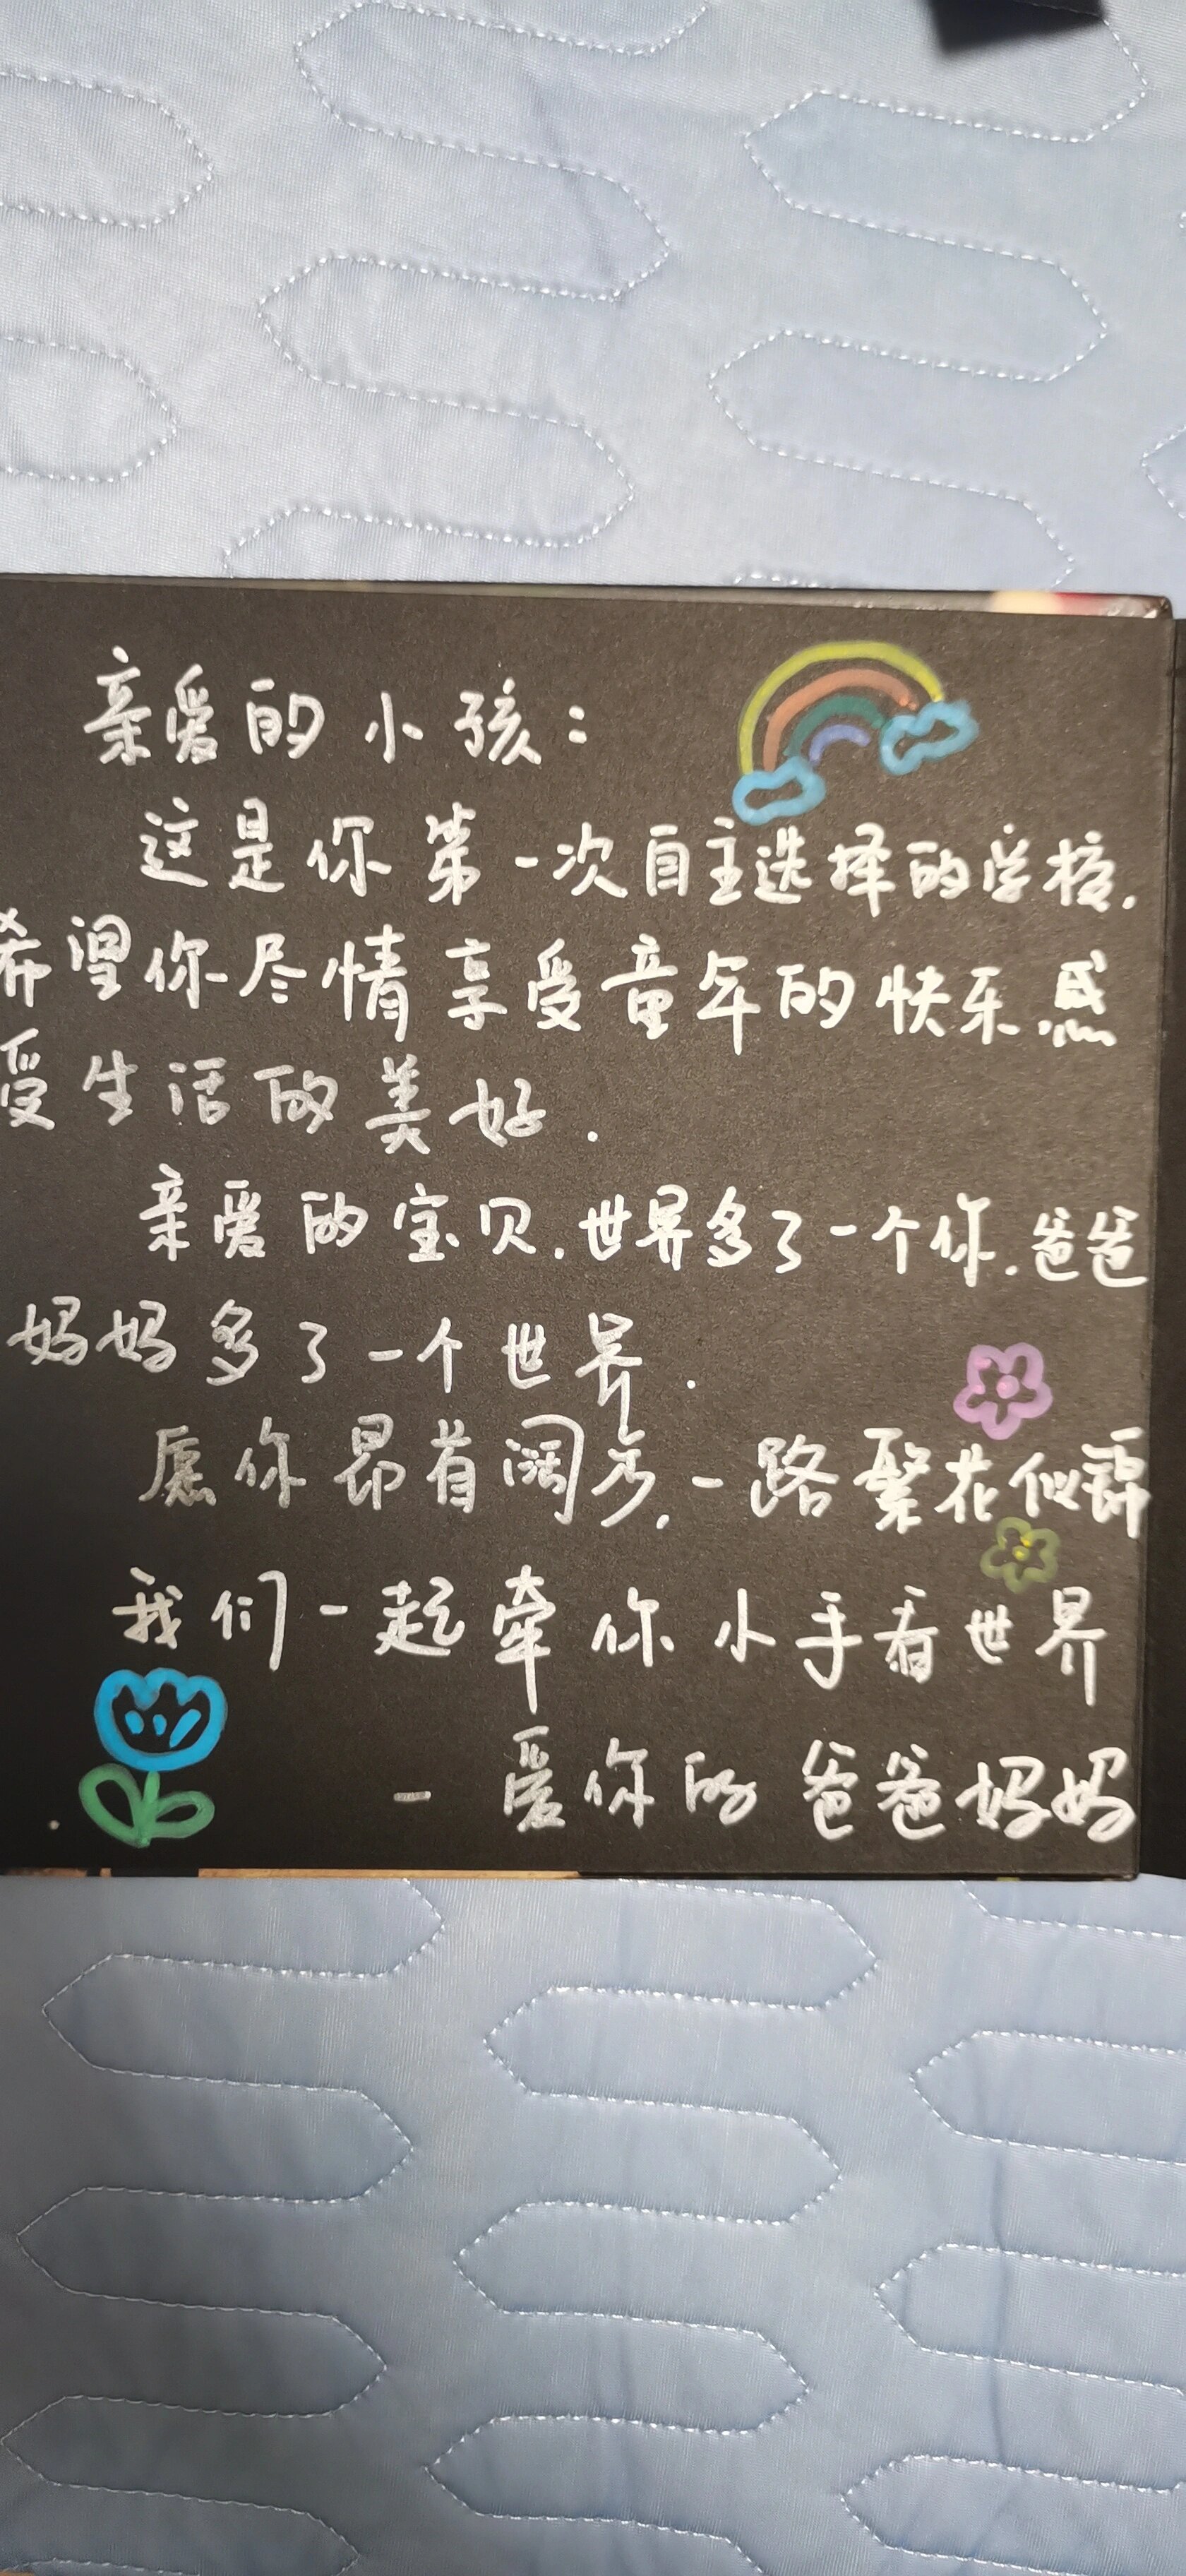 亲爱的小孩：
这是你第一次自主选择的学校.
希望你尽情享受童年的快乐.感
受生活的美好.
亲爱的宝贝.世界多了一个你.爸爸
妈妈多了一个世界.
愿你昂首阔步.一路繁花似锦
我们一起牵你小手看世界
- 爱你的爸爸妈妈